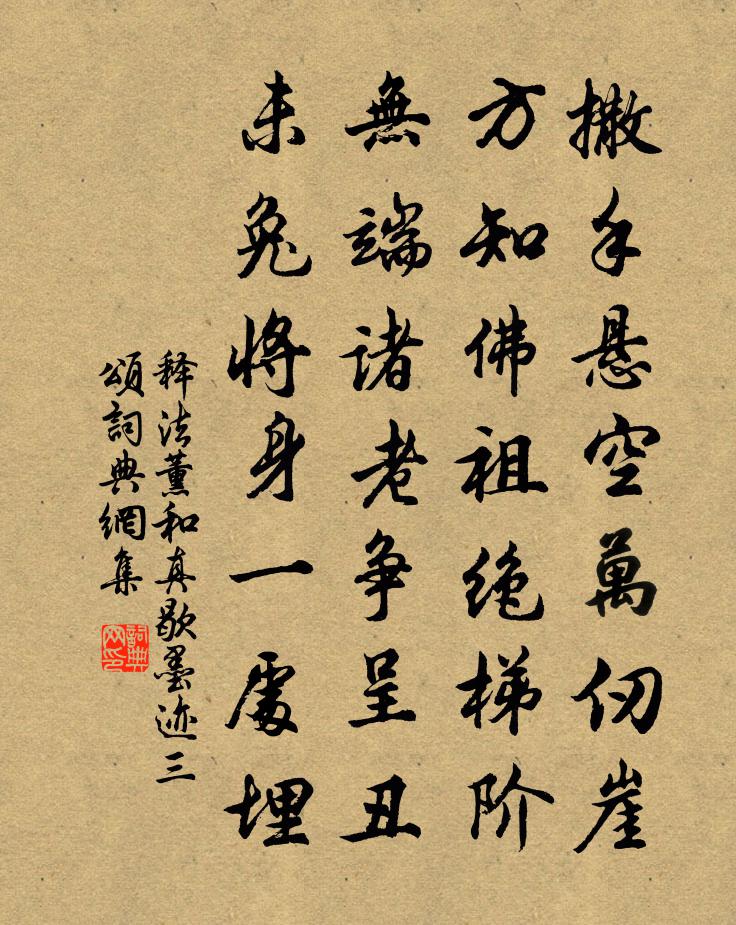 撒手悬空萬仞崖
方知佛祖绝梯阶
無端诸老争呈丑
未免将身一處埋
释法薰和真歇墨迹三
頌詞典網集
詞典
网印